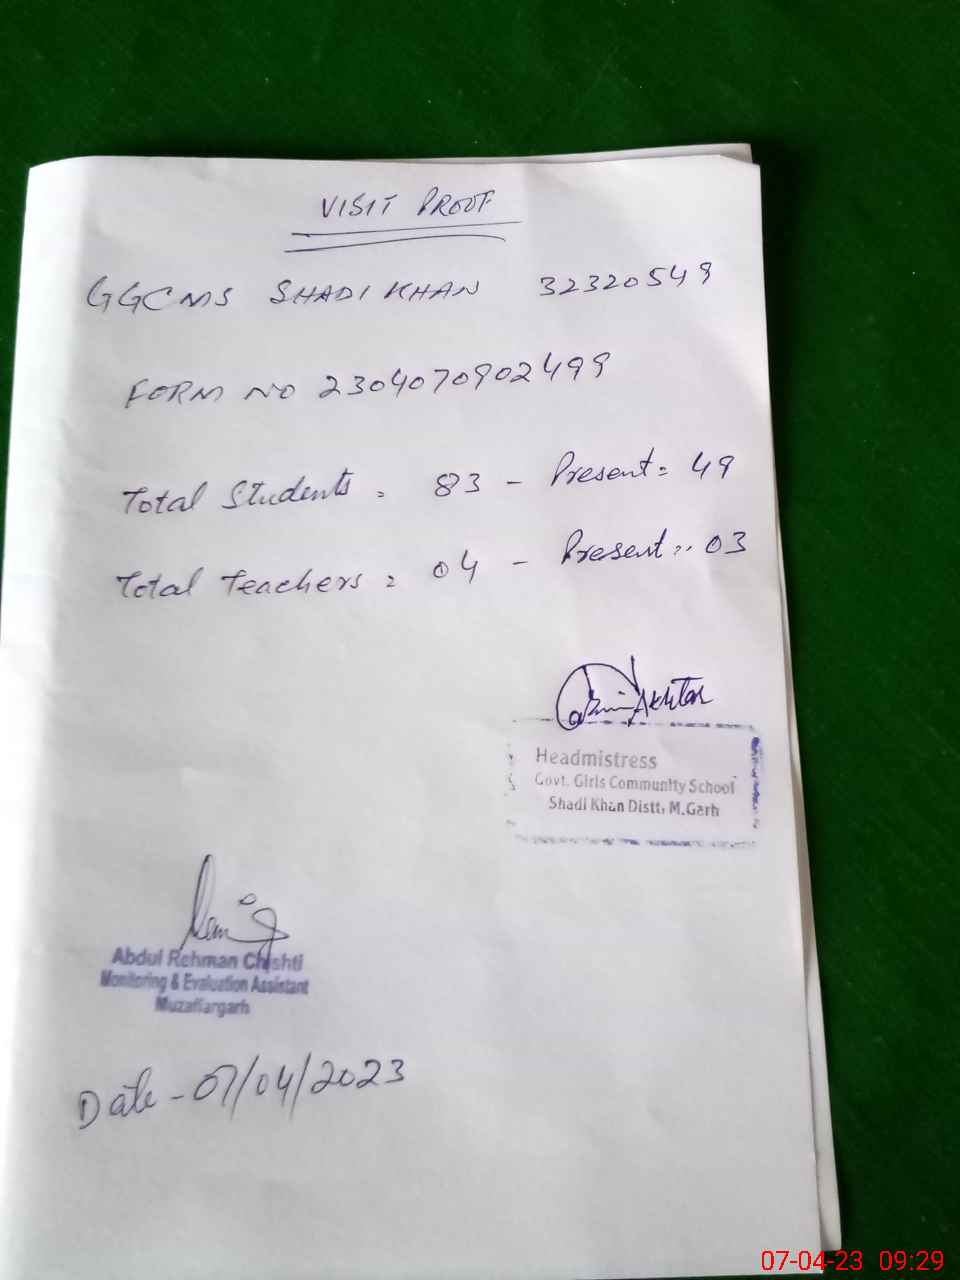 VISIT PROOF
GGCMS SHADI KHAN 32320549
FORM NO 2304070902499
Total Students = 83 - Present = 49
Total Teachers = 04 - Present = 03
Akhtar
Headmistress
Govt. Girls Community School
Shadi Khan Distt, M.Garh
Abdul Rehman Chishti
Monitoring & Evaluation Assistant
Muzaffargarh
Date - 07/04/2023
07-04-23 09:29